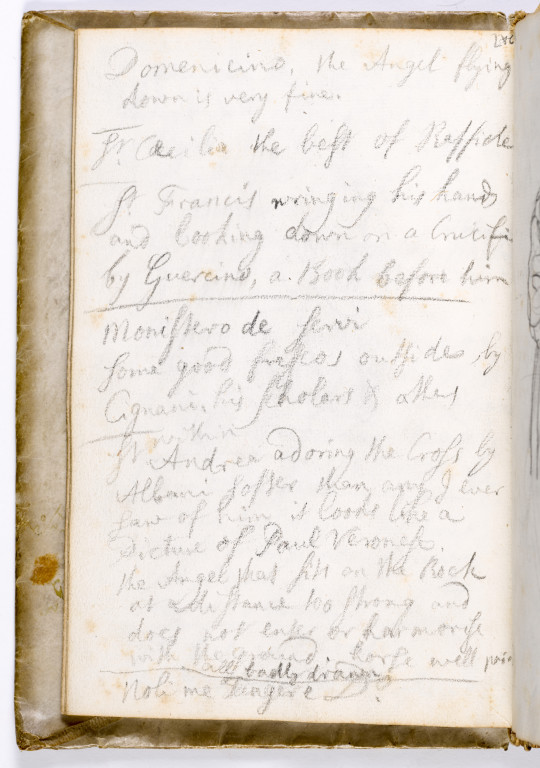 Domenicino, the Angel flying
down is very fine.
St. Cæcilia the best of Raffiele
St Francis wringing his hands
and looking down on a Crucifi
by Guercino, a Book before him
Monistero de Servi
Some good frescos outsides by
Cignani, his Scholars & others
within
St. Andrea adoring the Cross by
Albani softer than any I ever
saw of him it looks like a
Picture of Paul Verones.
the Angel that sits on the Rock
at a distance too strong and
does not enter or harmonise
with the ground, horse well
all badly drawn
Noli me Tangere